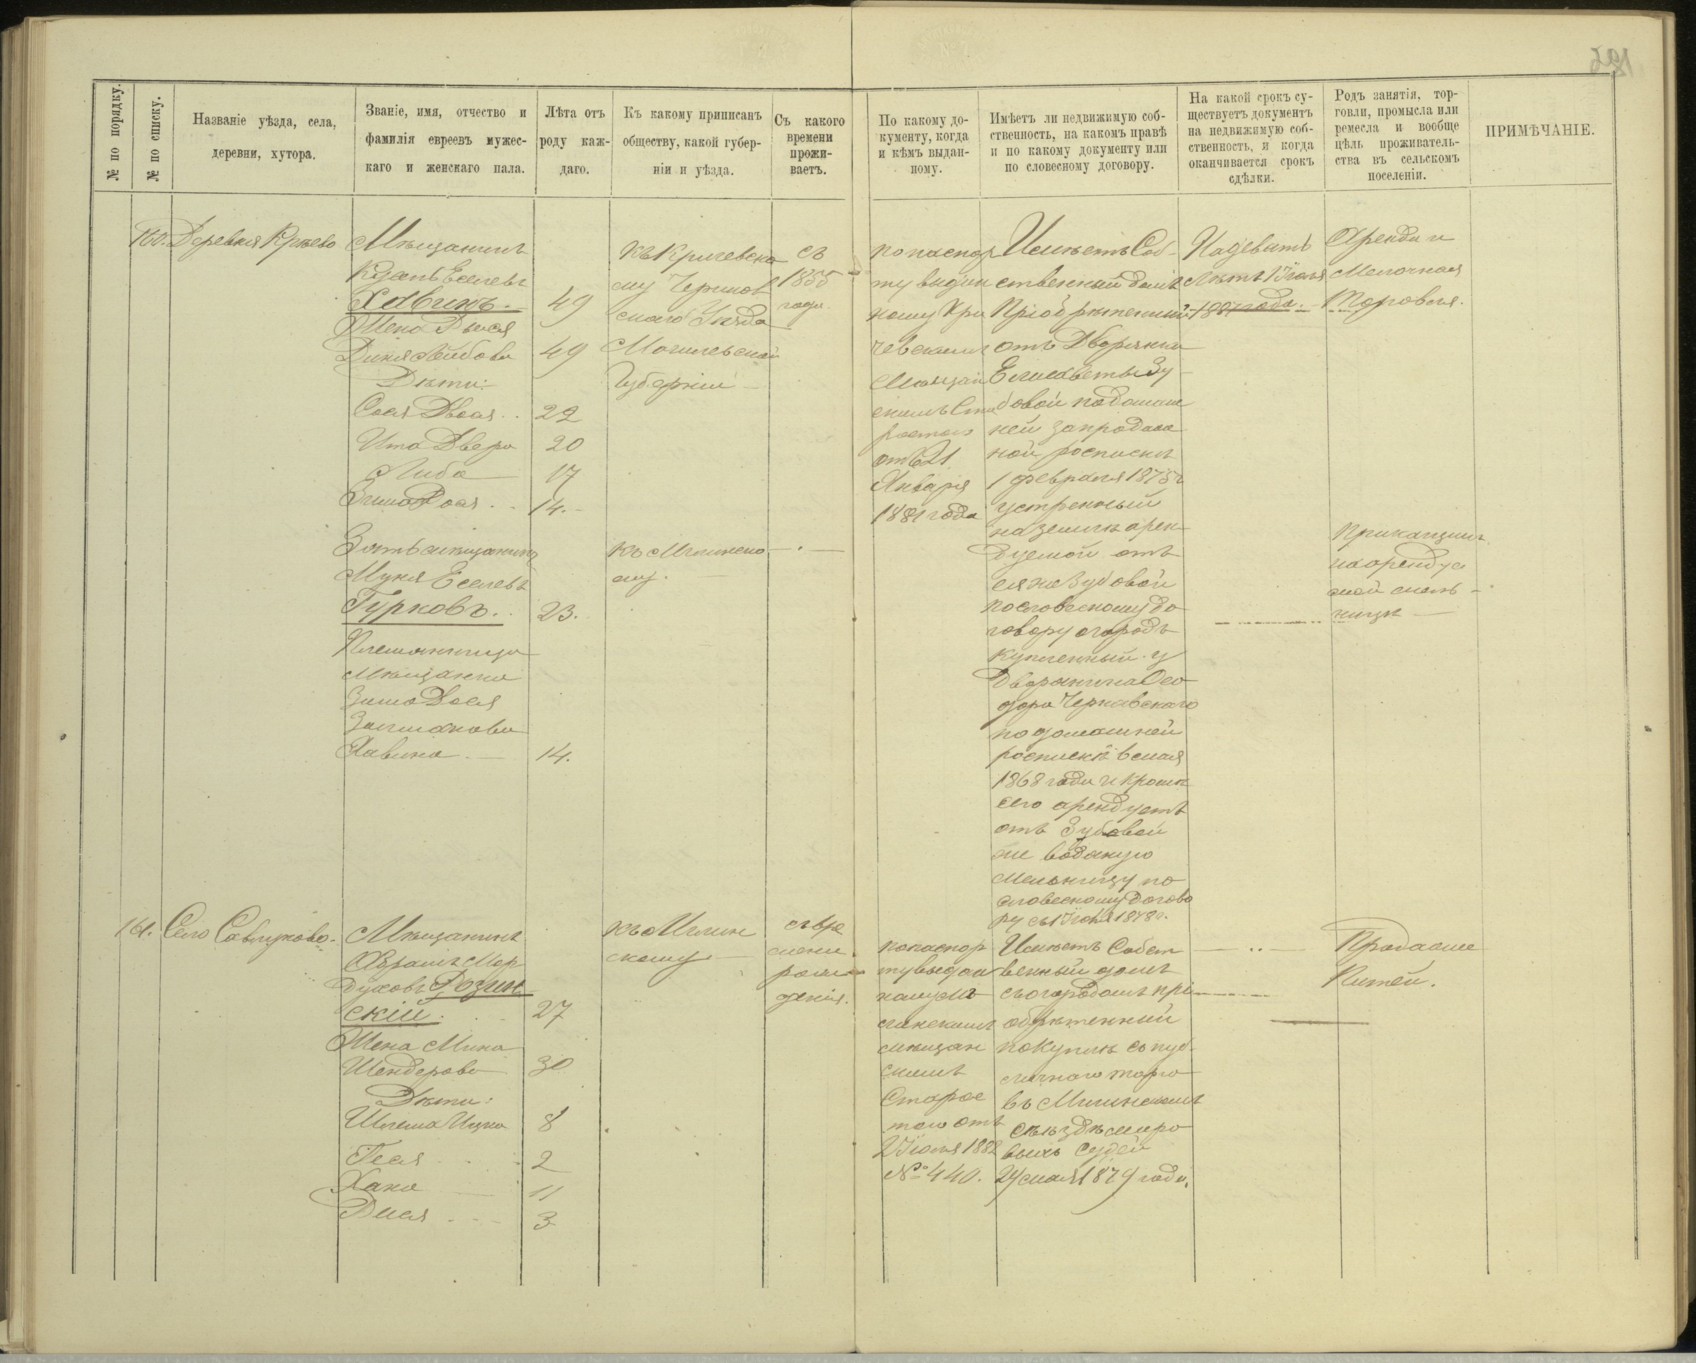 № по порядку.
№ по списку.
Названіе уѣзда, села,
деревни, хутора.
Званіе, имя, отчество и
фамилія евреевъ мужес-
каго и женскаго пала.
Лѣта отъ
роду каж-
даго.
Къ какому приписанъ
обществу, какой губер-
ніи и уѣзда.
Съ какого
времени
прожи-
ваетъ.
По какому до-
кументу, когда
и кѣмъ выдан-
ному.
Имѣетъ ли недвижимую соб-
ственность, на какомъ правѣ
и по какому документу или
по словесному договору.
На какой срокъ су-
ществуетъ документъ
на недвижимую соб-
ственность, и когда
оканчивается срокъ
сдѣлки.
Родъ занятія, тор-
говли, промысла или
ремесла и вообще
цѣль проживатель-
ства въ сельскомъ
поселеніи.
ПРИМѢЧАНІЕ.
160.
Деревня
Мѣщанинъ
Хавинъ.
49
Жена
49
Дѣти:
22
20
Либа
17
14.
Зять мѣщанинъ
Муня Еселевъ
Гурковъ.
23.
Племянница
Мѣщанка
Хавина
14.
Къ Кричевско
му Чериков
скаго Уѣзда
Могилевской
Губерніи
Къ Мглинско
му.
съ
1855
года
по паспор
ту выдан
ному Кри
чевскимъ
Мѣщан
скимъ Ста
ростою
отъ 21
Января
1881 года
Имѣетъ Соб-
ственный домъ
Пріобрѣтенный
отъ Дворянки
Елисаветы Зу
бовой по домаш
ней запродаж
ной роспискѣ
1 февраля 1875 г
устроенный
на землѣ арен
дуемой отъ
ея же Зубовой
по словесному до
говору огородъ
купленный у
Дворянина Ѳео
дора Чернавскаго
по домашней
роспискѣ 8 мая
1868 года и кромѣ
сего арендуетъ
отъ Зубовой
же водяную
Мельницу по
словесному догово
ру съ 1 Іюня 1878 г.
Аренда и
Мелочная
Торговля.
Прикащикъ
на арендуе
мой мель
ницѣ
161.
Село
Мѣщанинъ
Абрамъ Мор
духовъ Розин
скій.
27
Жена Мина
Шендерова
30
Дѣти:
Шлема Ицка
8
Геся
2
Хана
11
Дися
3
Къ Мглин
скому
съ вре
мени
рож
денія.
по паспор
ту выдан
ному Мг
линскимъ
мѣщан
скимъ
Старос
тою отъ
2 Іюля 1882
№ 440.
Имѣетъ Собст
венный домъ
съ огородомъ прі
обрѣтенный
покупкѣ съ пуб
личнаго торга
въ Мглинскомъ
съѣздѣ миро
выхъ Судей
24 мая 1879 года.
Продажа
Питей.